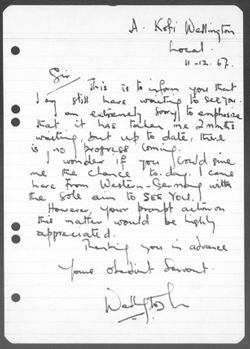 A. Kofi Wellington
Local.
11-12.67.
Sir,
This is to inform you that
I am still here waiting to see you.
I am extremely sorry to emphasize
that it has taken me 2 months
waiting, but up to date, there
is no progress coming.
I wonder if you could give
me the chance to-day. I came
here from Western-Germany with
the sole aim to SEE YOU.
However, your prompt action on
this matter would be highly
appreciated.
Thanking you in advance
Yours obedient servant.